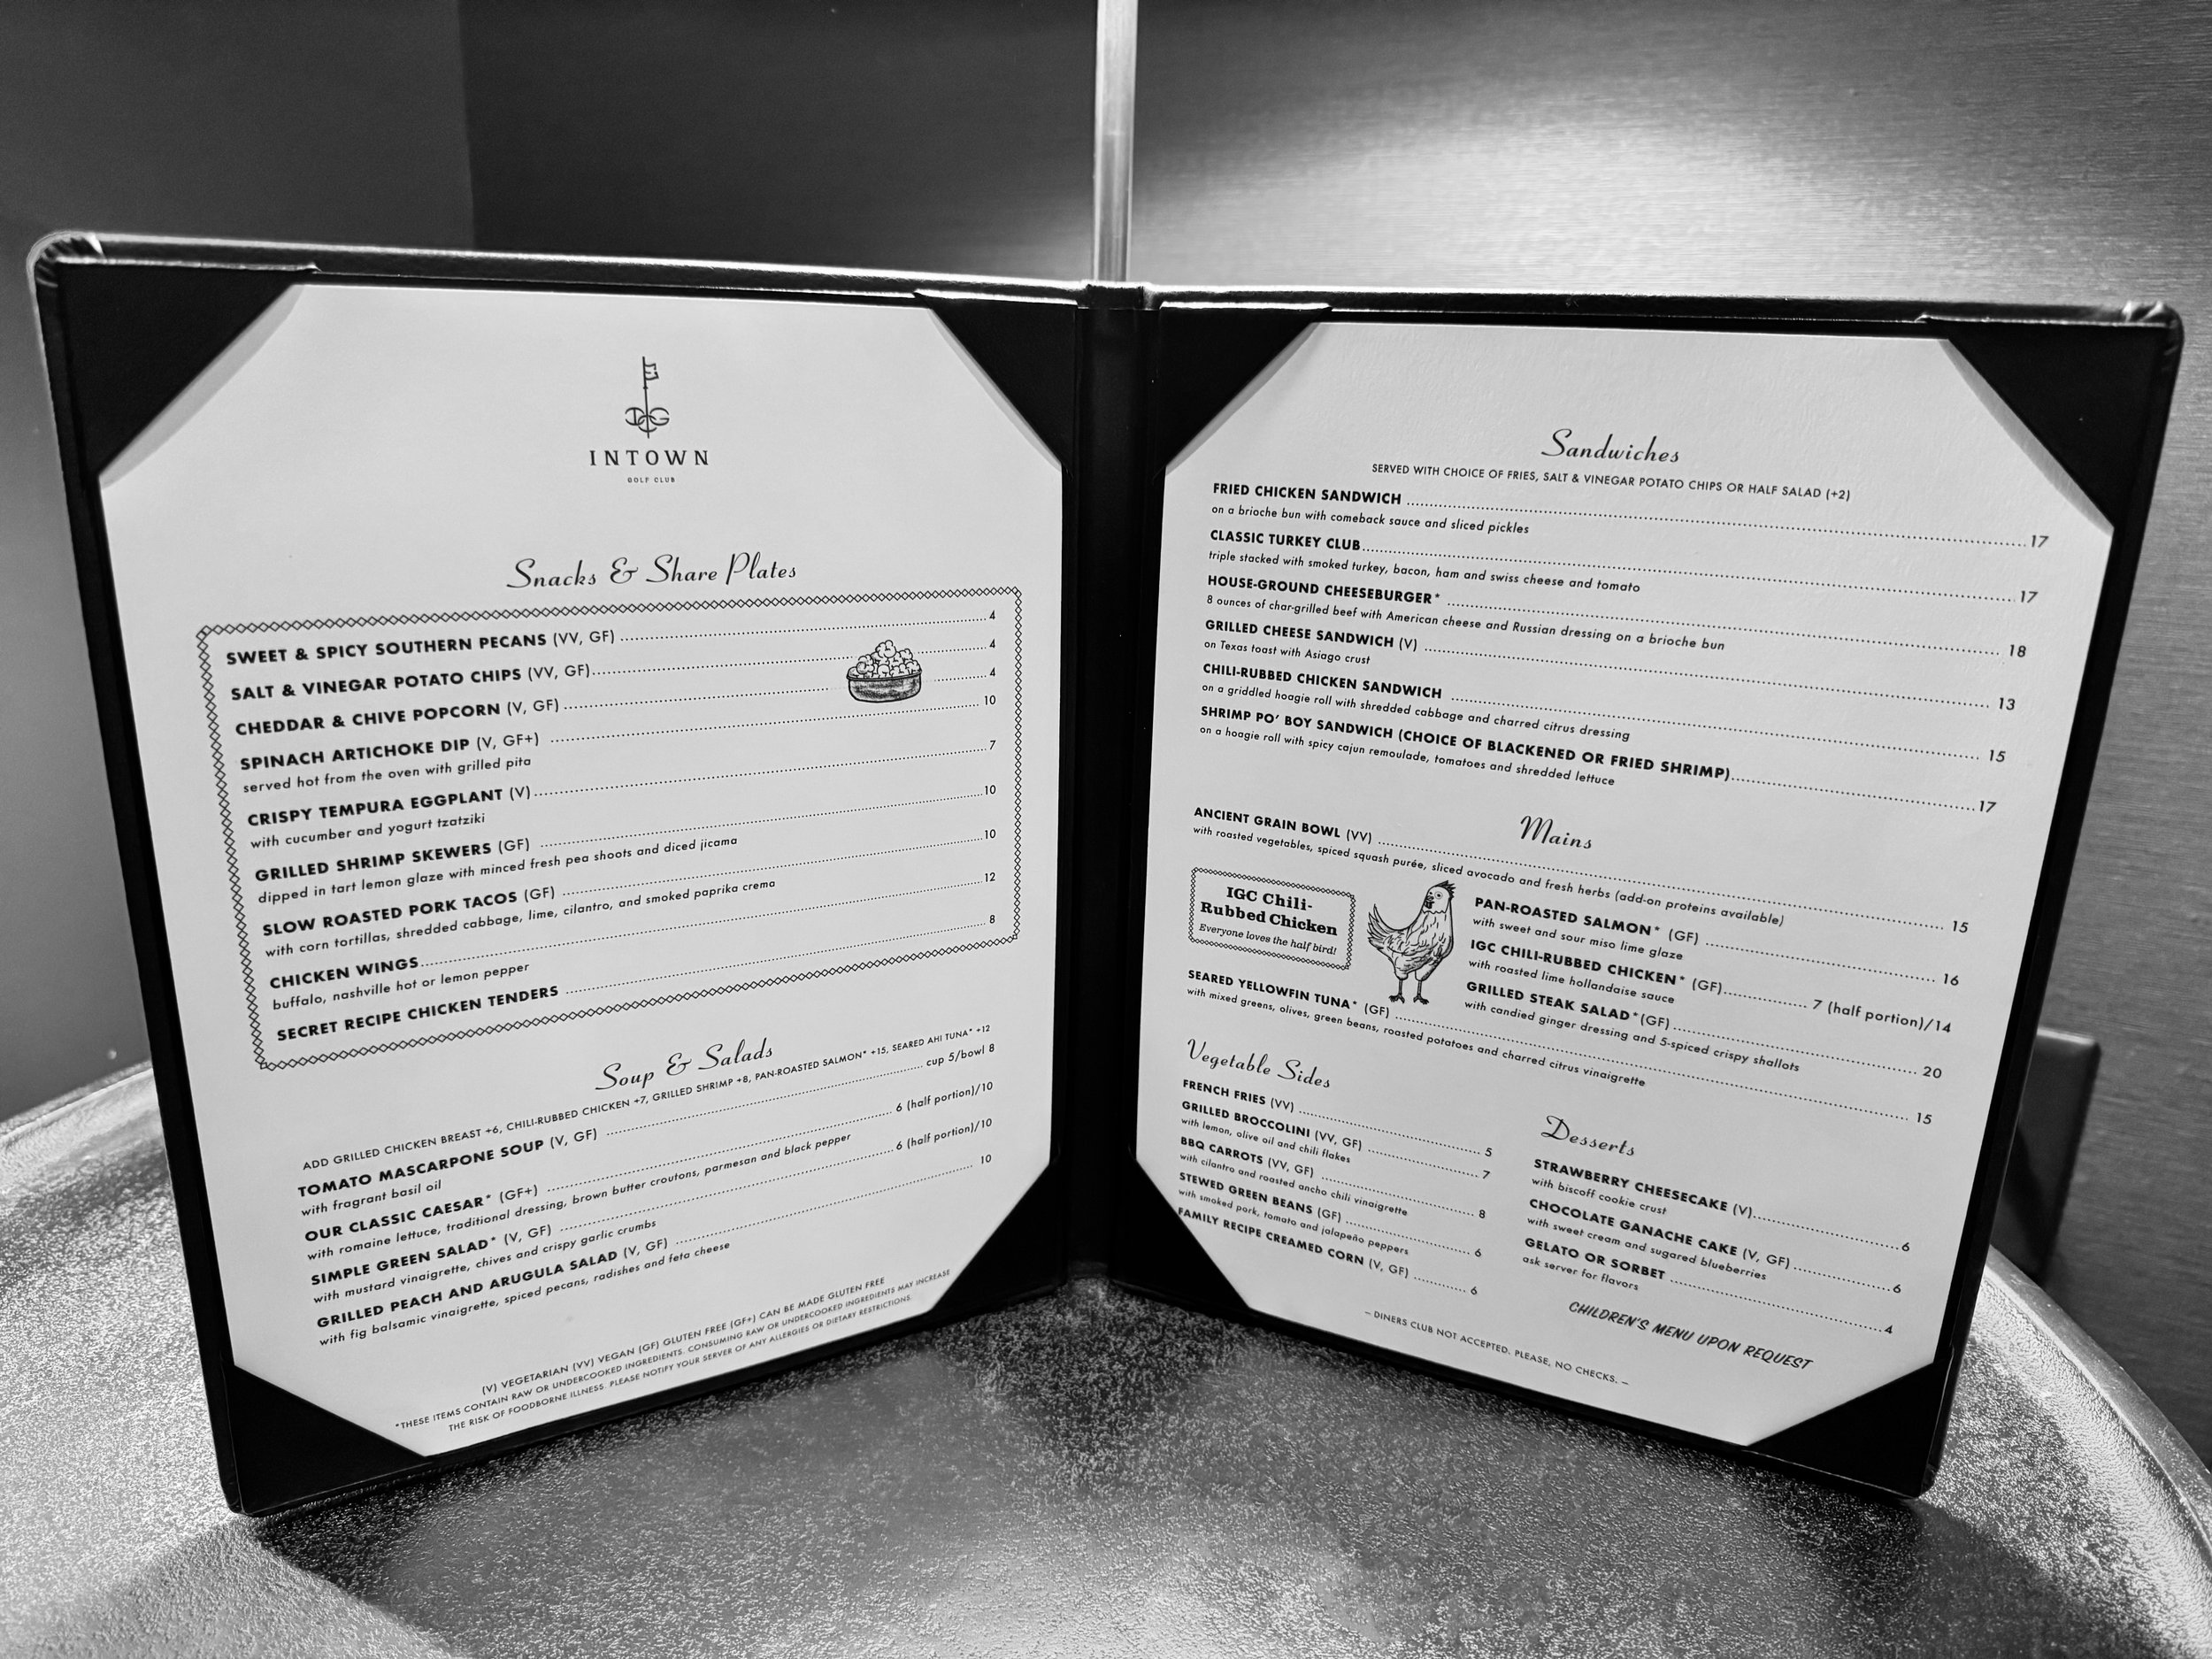 ICGC
INTOWN
GOLF CLUB
Snacks & Share Plates
SWEET & SPICY SOUTHERN PECANS (VV, GF) 4
SALT & VINEGAR POTATO CHIPS (VV, GF) 4
CHEDDAR & CHIVE POPCORN (V, GF) 4
SPINACH ARTICHOKE DIP (V, GF+) 10
served hot from the oven with grilled pita
CRISPY TEMPURA EGGPLANT (V) 7
with cucumber and yogurt tzatziki
GRILLED SHRIMP SKEWERS (GF) 10
dipped in tart lemon glaze with minced fresh pea shoots and diced jicama
SLOW ROASTED PORK TACOS (GF) 10
with corn tortillas, shredded cabbage, lime, cilantro, and smoked paprika crema
CHICKEN WINGS 12
buffalo, nashville hot or lemon pepper
SECRET RECIPE CHICKEN TENDERS 8
Soup & Salads
ADD GRILLED CHICKEN BREAST +6, CHILI-RUBBED CHICKEN +7, GRILLED SHRIMP +8, PAN-ROASTED SALMON* +15, SEARED AHI TUNA* +12
TOMATO MASCARPONE SOUP (V, GF) cup 5/bowl 8
with fragrant basil oil
OUR CLASSIC CAESAR* (GF+) 6 (half portion)/10
with romaine lettuce, traditional dressing, brown butter croutons, parmesan and black pepper
SIMPLE GREEN SALAD* (V, GF) 6 (half portion)/10
with mustard vinaigrette, chives and crispy garlic crumbs
GRILLED PEACH AND ARUGULA SALAD (V, GF) 10
with fig balsamic vinaigrette, spiced pecans, radishes and feta cheese
(V) VEGETARIAN (VV) VEGAN (GF) GLUTEN FREE (GF+) CAN BE MADE GLUTEN FREE
*THESE ITEMS CONTAIN RAW OR UNDERCOOKED INGREDIENTS. CONSUMING RAW OR UNDERCOOKED INGREDIENTS MAY INCREASE
THE RISK OF FOODBORNE ILLNESS. PLEASE NOTIFY YOUR SERVER OF ANY ALLERGIES OR DIETARY RESTRICTIONS.
Sandwiches
SERVED WITH CHOICE OF FRIES, SALT & VINEGAR POTATO CHIPS OR HALF SALAD (+2)
FRIED CHICKEN SANDWICH 17
on a brioche bun with comeback sauce and sliced pickles
CLASSIC TURKEY CLUB 17
triple stacked with smoked turkey, bacon, ham and swiss cheese and tomato
HOUSE-GROUND CHEESEBURGER* 18
8 ounces of char-grilled beef with American cheese and Russian dressing on a brioche bun
GRILLED CHEESE SANDWICH (V) 13
on Texas toast with Asiago crust
CHILI-RUBBED CHICKEN SANDWICH 15
on a griddled hoagie roll with shredded cabbage and charred citrus dressing
SHRIMP PO' BOY SANDWICH (CHOICE OF BLACKENED OR FRIED SHRIMP) 17
on a hoagie roll with spicy cajun remoulade, tomatoes and shredded lettuce
Mains
ANCIENT GRAIN BOWL (VV) 15
with roasted vegetables, spiced squash purée, sliced avocado and fresh herbs (add-on proteins available)
IGC Chili-
Rubbed Chicken
Everyone loves the half bird!
PAN-ROASTED SALMON* (GF) 16
with sweet and sour miso lime glaze
IGC CHILI-RUBBED CHICKEN* (GF) 7 (half portion)/14
with roasted lime hollandaise sauce
GRILLED STEAK SALAD* (GF) 20
with candied ginger dressing and 5-spiced crispy shallots
SEARED YELLOWFIN TUNA* (GF) 15
with mixed greens, olives, green beans, roasted potatoes and charred citrus vinaigrette
Vegetable Sides
FRENCH FRIES (VV) 5
GRILLED BROCCOLINI (VV, GF) 7
with lemon, olive oil and chili flakes
BBQ CARROTS (VV, GF) 8
with cilantro and roasted ancho chili vinaigrette
STEWED GREEN BEANS (GF) 6
with smoked pork, tomato and jalapeño peppers
FAMILY RECIPE CREAMED CORN (V, GF) 6
Desserts
STRAWBERRY CHEESECAKE (V) 6
with biscoff cookie crust
CHOCOLATE GANACHE CAKE (V, GF) 6
with sweet cream and sugared blueberries
GELATO OR SORBET 4
ask server for flavors
CHILDREN'S MENU UPON REQUEST
— DINERS CLUB NOT ACCEPTED. PLEASE, NO CHECKS. —